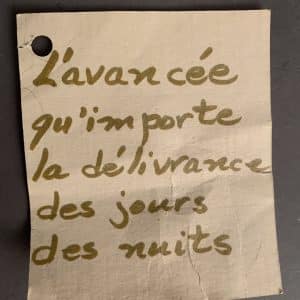 L'avancée
qu'importe
la délivrance
des jours
des nuits